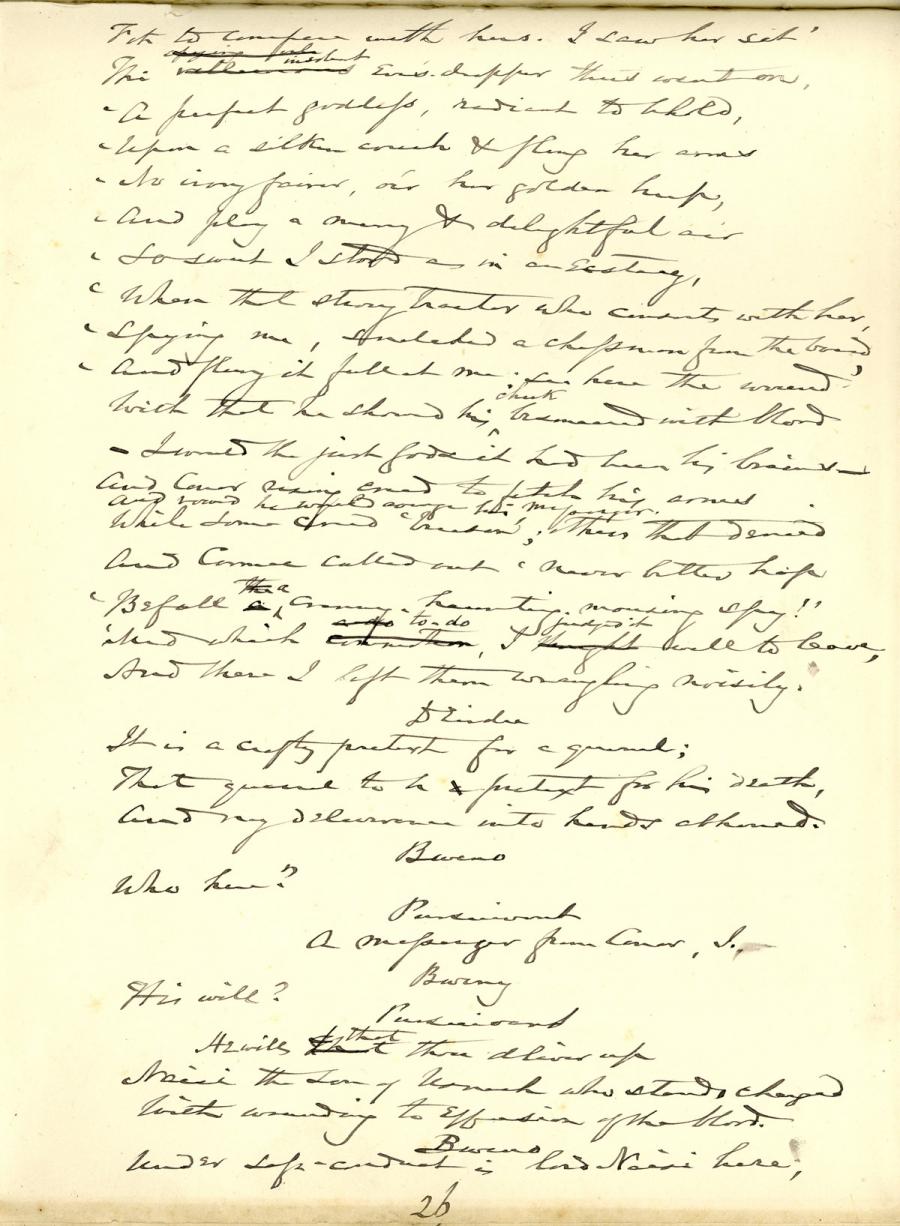 Fit to compare with hers. I saw her sit'
spying
insolent
The villainous Eves-dropper thus went on,
"A perfect goddess, radiant to behold,
"Upon a silken couch & fling her arms
"No ivory fairer, o'er her golden harp,
"And play a merry & delightful air
"So sweet I stood as in an Ecstacy,
"When that strong traitor who consorts with her,
"Spying me, snatched a chessman from the board,
"And flung it full at me: see here the wound"
cheek
With that he showed his besmeared with blood
– I would the just gods it had been his brains –
And Conor rising cried to fetch his arms
And vowed he would avenge his messenger.
While some cried 'treason'; others that denied
And Cormac called out 'never better hap
the a
"Befall a cranny-haunting, mousing spy!"
a-do to-do judged it
'Mid which commotion, I thought well to leave,
And there I left them wrangling noisily.
Deirdre
It is a crafty pretext for a quarrel;
That quarrel to be a pretext for his death,
And my deliverance into hands abhorred.
Buino
Who here?
Pursuivant
A messenger from Conor, I.
Buino
His will?
Pursuivant
that
He wills that thou deliver up
Naisi the son of Usnach who stands charged
With wounding to Effusion of the blood.
Buino
Under safe-conduct is lord Naisi here;
26